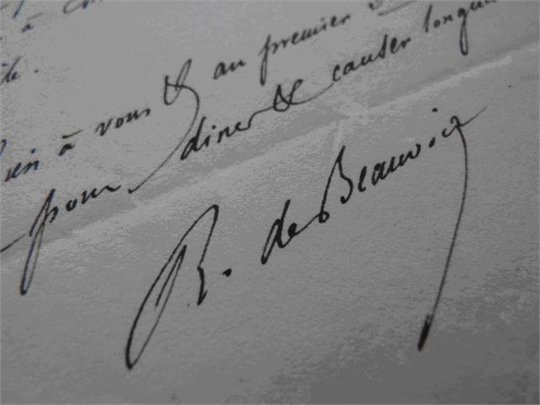 à
ien à vous & au premier
pour diner & causer longue
R. de Beauvoir